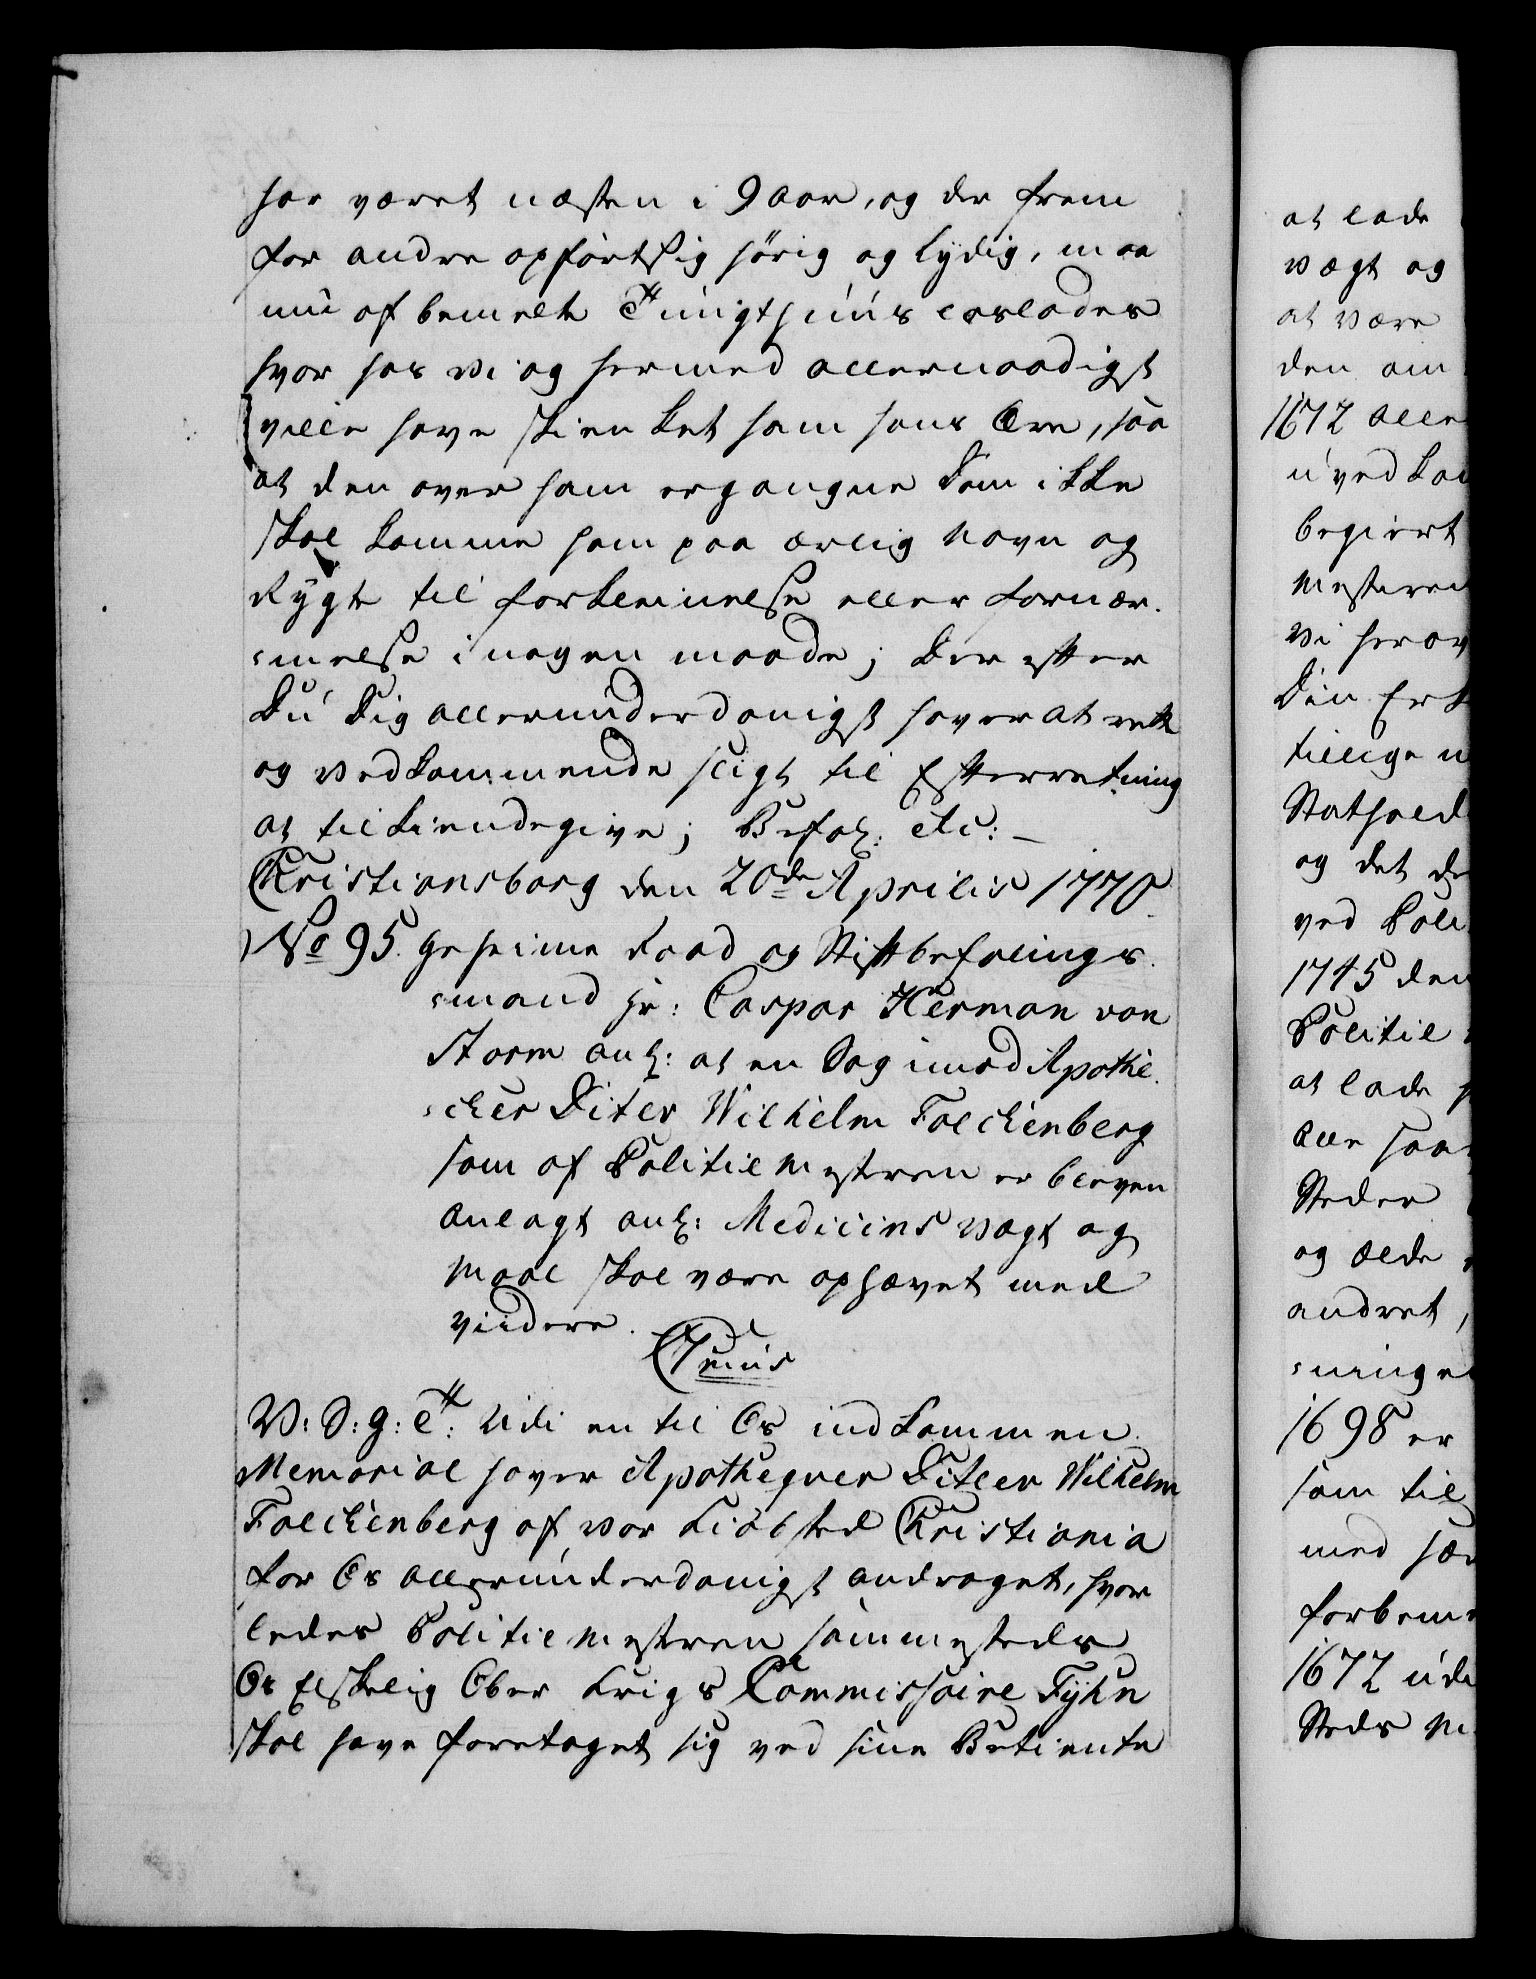 har været næsten i 9 aar, og der frem
for andre opført sig hörig og lydig, maa
nu af bemelte Tugthuus loslades
hvor hos vi og hermed allernaadigst
ville have skienket ham hans Ære, saa
at den over ham ergangne Dom ikke
skal komme ham paa ærlig Navn og
Rygte til forkleinelse eller fornær-
melse i nogen maade; Der efter
Du Dig allerunderdanigst haver at rette
og vedkommende sligt til Efterretning
at tilkiendegive; Befal: etc: —
Christiansborg den 20de Aprilis 1770
No 95. Geheime Raad og Stiftbefalings-
mand Hr: Caspar Herman von
Storm anl: at en Sag imod Apothe-
cker Ditlev Wilhelm Falckenberg
som af Politiemesteren er bleven
anlagt anl: Medicins vægt og
Maal skal være ophævet med
viidere.
C7mus
V: S: g: Ctt: Udi en til Os indkommen
Memorial haver Apotheqver Ditlev Wilhelm
Falckenberg af vor Kiöbsted Christiania
for Os allerunderdanigst andraget, hvor
ledes Politiemesteren sammesteds
Os Elskelig Ober Krigs Commissaire Fyhn
skal have foretaget sig ved sine Betiente
at lade
vægt og
at være
den om
1672 alle
uvedko
begiert
Mesteren
vi herov
Din Erk
tillige
Stathold
og det
ved Poli
1745 den
Politie
at lade
alle saa
Steder
og ælde
andret,
ninge
1698 er
som til
med
forbem
1672 ud
Steds M